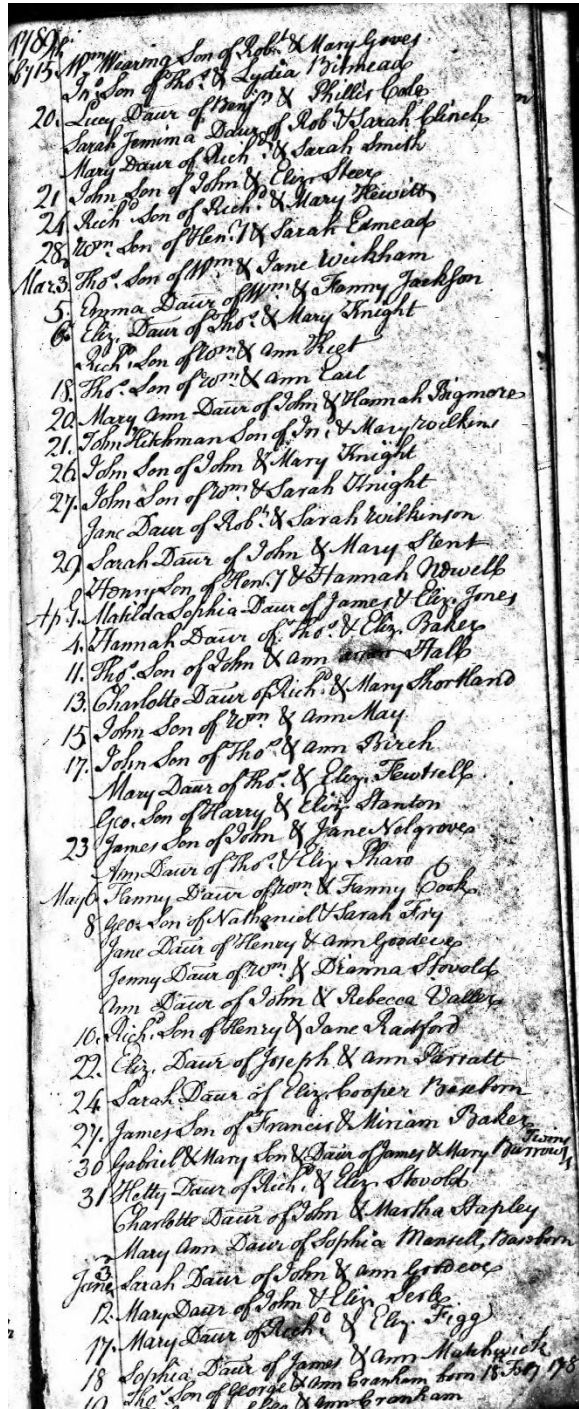 1789
Feby 15. Wm Wearing Son of Robt & Mary Goves
Jno Son of Thos & Lydia Bitmead
20. Lucy Daur of Benjn & Phillis Cole
Sarah Jemima Daur of Robt & Sarah Clinch
Mary Daur of Richd & Sarah Smith
21 John Son of John & Eliz. Steer
24 Richd Son of Richd & Mary Hewitt
28 Wm Son of Henry & Sarah Edmead
Mar 3. Thos Son of Wm & Jane Wickham
5. Emma Daur of Wm & Fanny Jackson
6. Eliz. Daur of Thos & Mary Knight
Richd Son of Wm & Ann
18. Thos Son of Wm & Ann Earl
20. Mary Ann Daur of John & Hannah Bigmore
21. John Hitchman Son of Jno & Mary Wilkins
26 John Son of John & Mary Knight
27. John Son of Wm & Sarah Knight
Jane Daur of Robt & Sarah Wilkinson
29 Sarah Daur of John & Mary Stent
Henry Son of Henry & Hannah Newell
Ap Matilda Sophia Daur of James & Eliz. Jones
4. Hannah Daur of Thos & Eliz. Baker
11. Thos Son of John & Ann Hall
13. Charlotte Daur of Richd & Mary Shortland
15 John Son of Wm & Ann May
17. John Son of Thos & Ann Birch
Mary Daur of Thos & Eliz. Fewtrell
Geo. Son of Harry & Eliz. Stanton
23 James Son of John & Jane Nelgrove
Ann Daur of Thos & Eliz. Pharo
May 6 Fanny Daur of Wm & Fanny Cook
8 Geo. Son of Nathaniel & Sarah Fry
Jane Daur of Henry & Ann Goodeve
Jenny Daur of Wm & Dianna Stovold
Ann Daur of John & Rebecca Valler
10. Richd Son of Henry & Jane Radford
22. Eliz. Daur of Joseph & Ann Parratt
24 Sarah Daur of Eliz. Cooper Baseborn
27. James Son of Francis & Miriam Baker
30 Gabriel & Mary Son & Daur of James & Mary Burrows Twins
31 Hetty Daur of Richd & Eliz. Stovold
Charlotte Daur of John & Martha Stapley
Mary Ann Daur of Sophia Mansell, Baseborn
June 3 Sarah Daur of John & Ann Goodeve
12. Mary Daur of John & Eliz.
17. Mary Daur of Richd & Eliz. Figg
18 Sophia Daur of James & Ann Matchwick
Thos Son of George & Ann Cranham born 18 Feby 178
& Ann Cranham